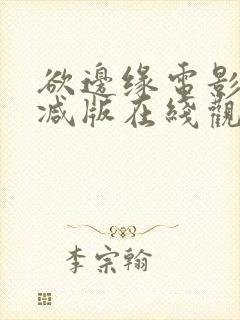 欲邊缘電影
减版在綫觀
李宗翰